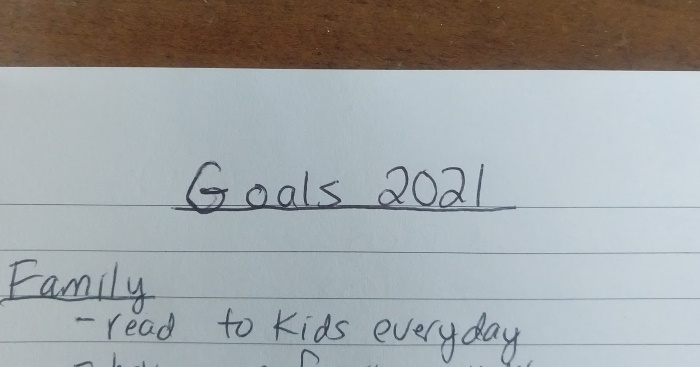 Goals 2021
Family
- read to kids everyday